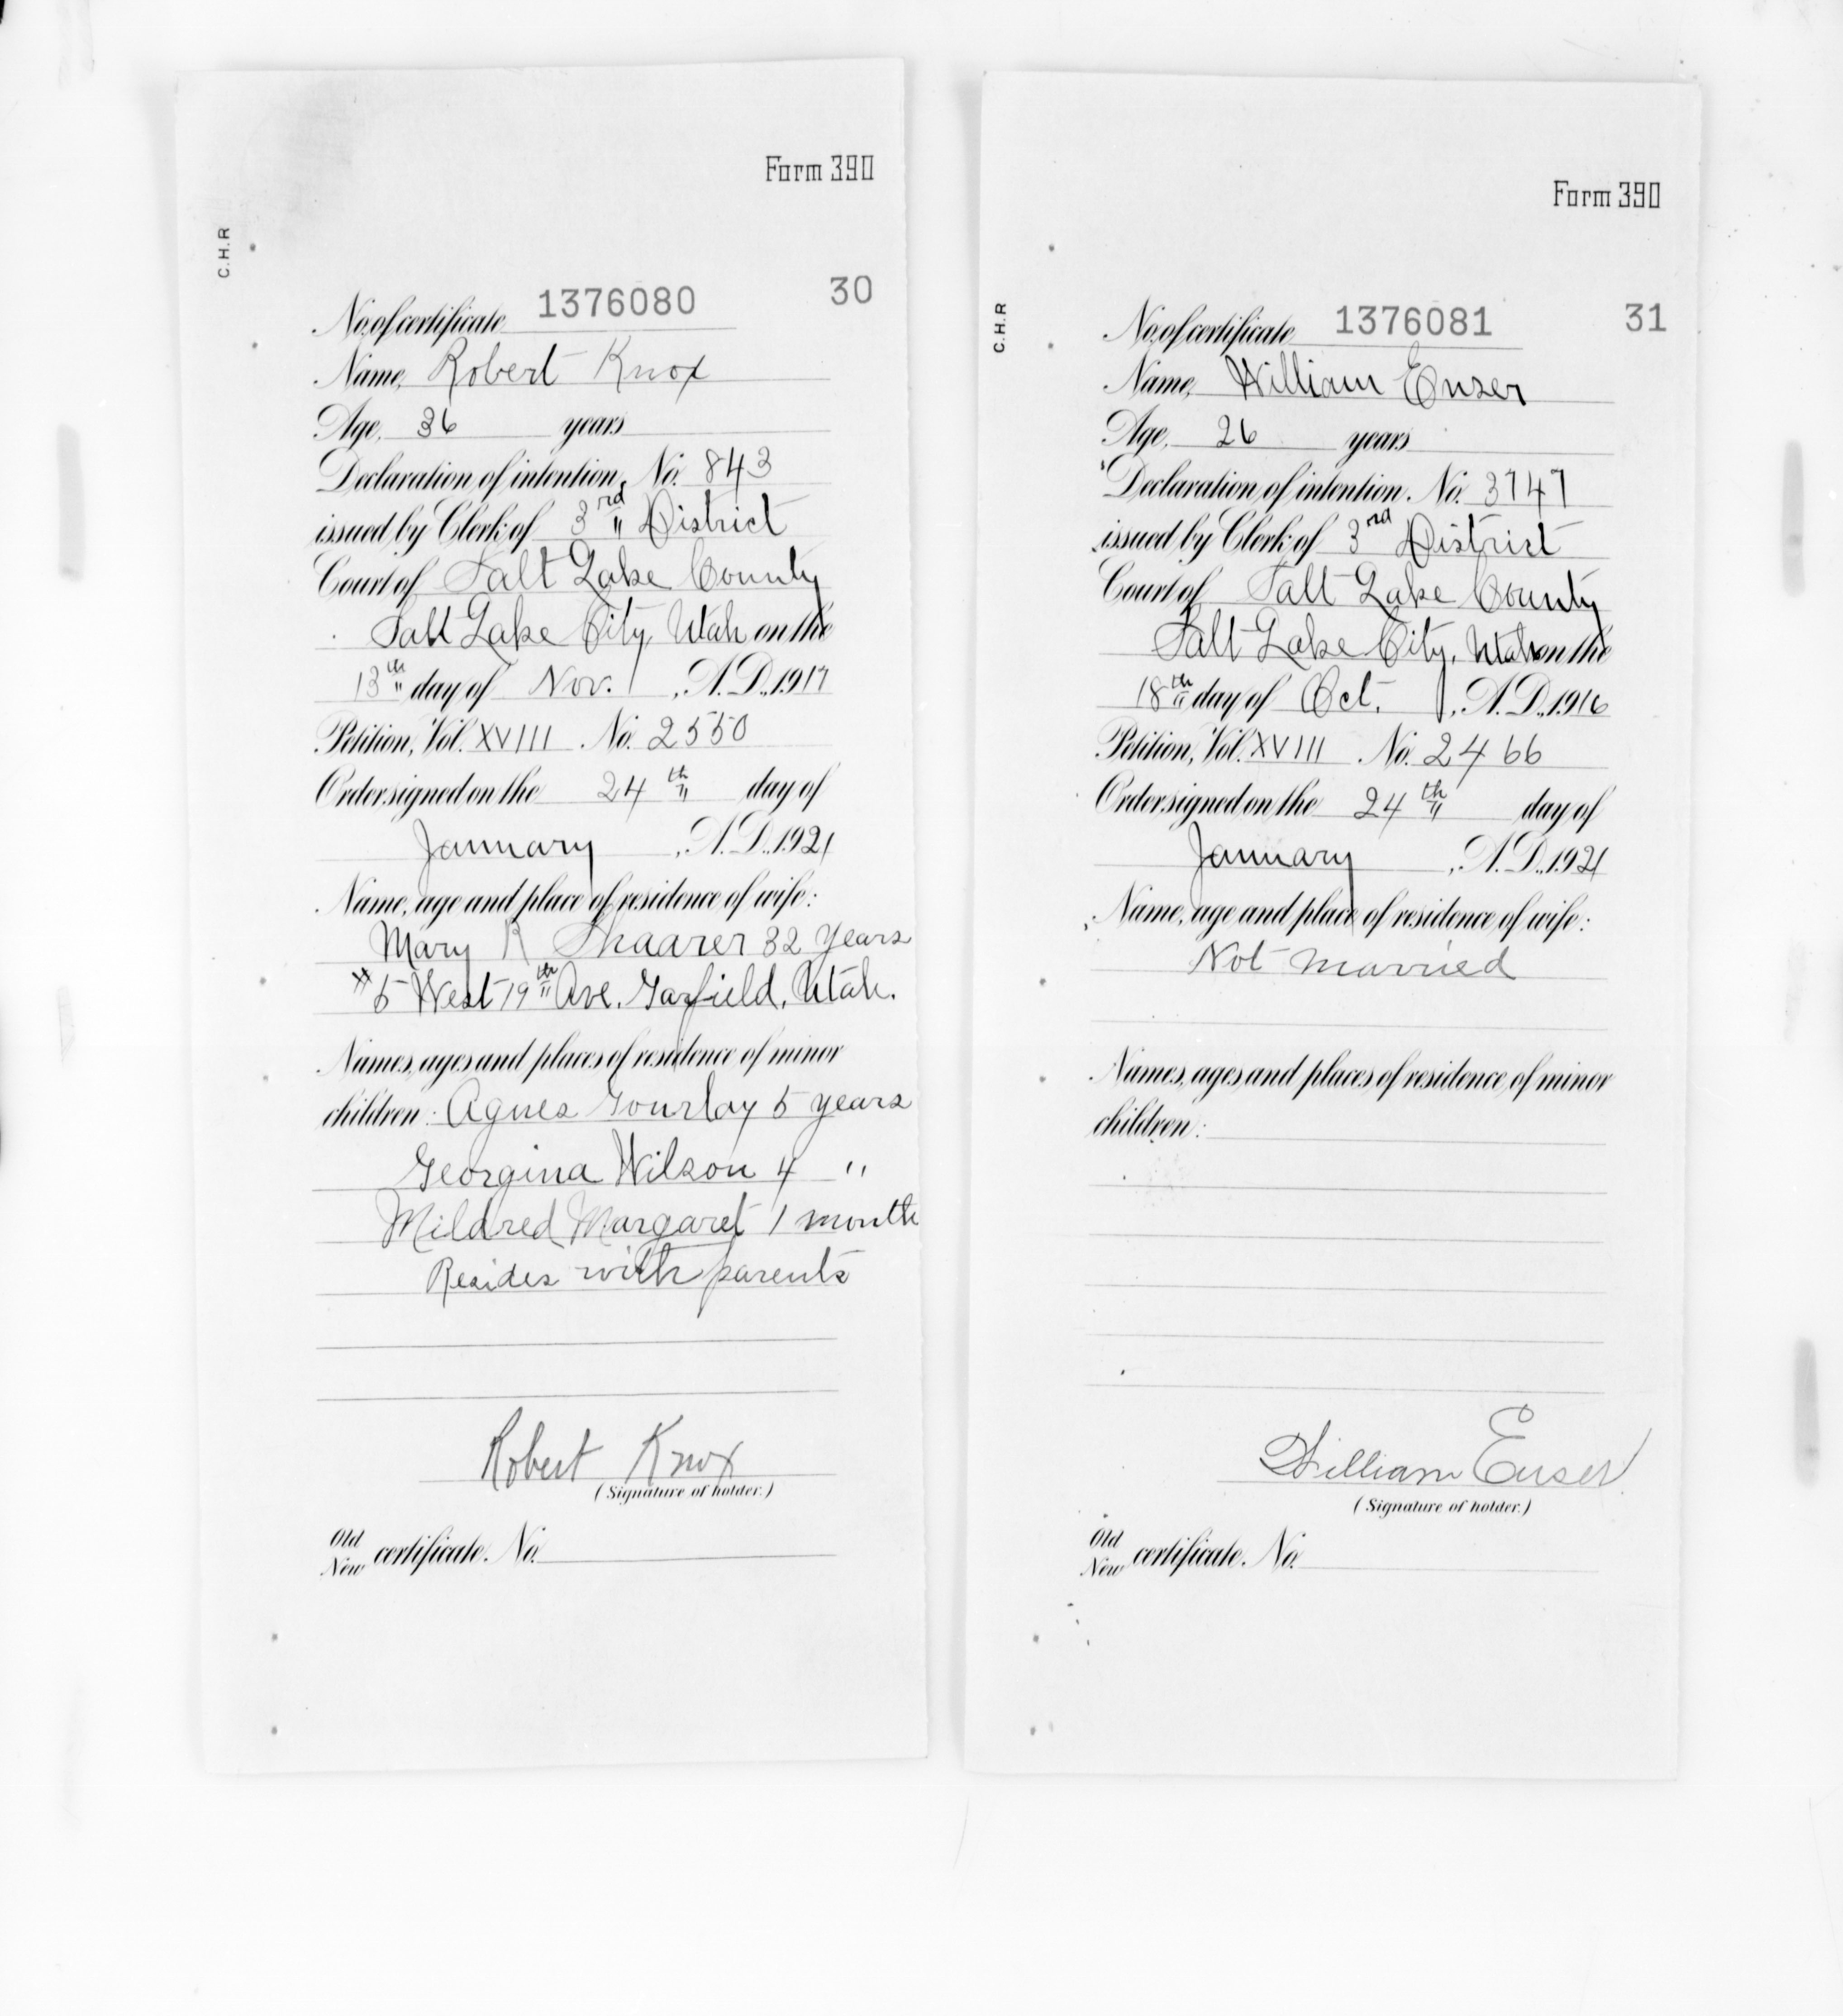 Form 390
C.H.R
No. of certificate 1376080 30
Name, Robert Knox
Age, 36 years
Declaration of intention, No. 843
issued by Clerk of 3rd " District
Court of Salt Lake County
Salt Lake City, Utah on the
13th " day of Nov. , A.D., 1917
Petition, Vol. XVIII . No. 2550
Order signed on the 24th " day of
January , A.D., 1921
Name, age and place of residence of wife:
Mary R Shaarer 32 years
# 5 West 19th " Ave. Garfield, Utah.
Names, ages and places of residence of minor
children: Agnes Gourlay 5 years
Georgina Wilson 4 "
Mildred Margaret 1 month
Resides with parents
Robert Knox
(Signature of holder.)
Old
New certificate. No.
Form 390
C.H.R
No. of certificate 1376081 31
Name, William Enser
Age, 26 years
Declaration of intention. No. 3747
issued by Clerk of 3rd District
Court of Salt Lake County
Salt Lake City, Utah on the
18th " day of Oct. , A.D., 1916
Petition, Vol. XVIII . No. 2466
Order signed on the 24th " day of
January , A.D., 1921
Name, age and place of residence of wife:
Not married
Names, ages and places of residence of minor
children:
William Enser
(Signature of holder.)
Old
New certificate. No.